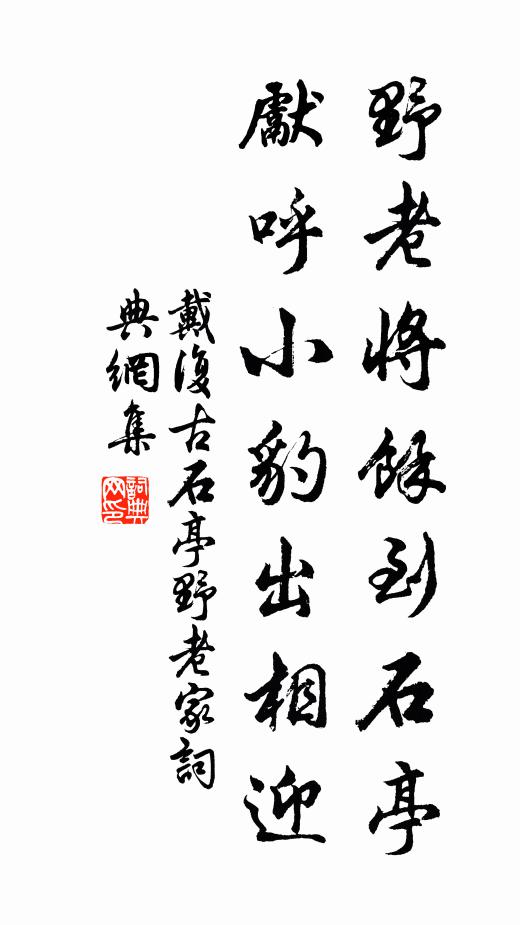 野老將餘到石亭
獻呼小豹出相迎
戴復古石亭野老家詞
典網集
詞典
网印